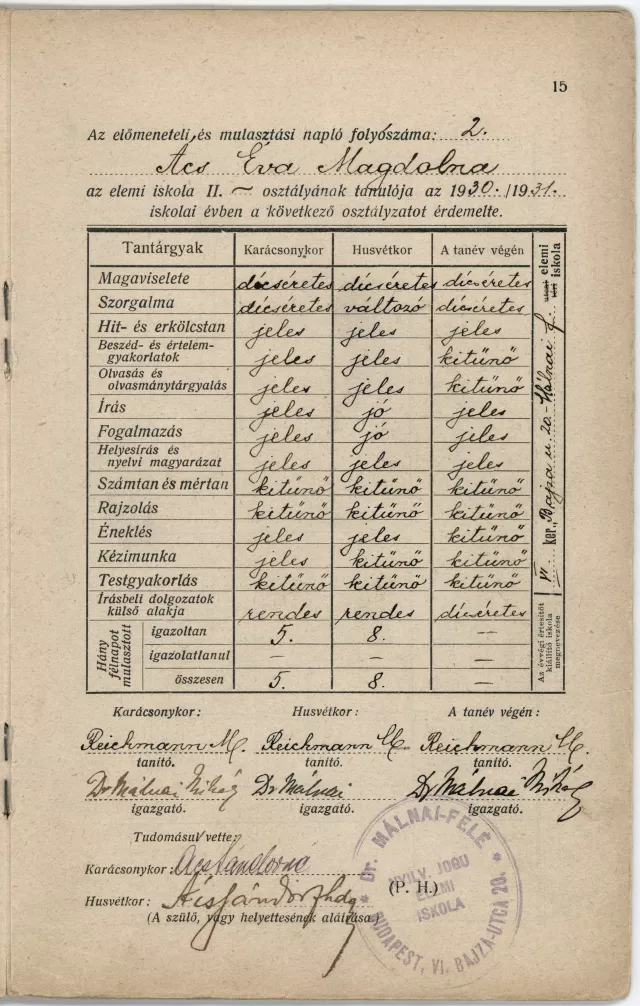 15
Az előmeneteli és mulasztási napló folyószáma: 2.
Ács Éva Magdolna
az elemi iskola II. ~ osztályának tanulója az 1930./1931.
iskolai évben a következő osztályzatot érdemelte.
Tantárgyak Karácsonykor Husvétkor A tanév végén
Magaviselete dícséretes dícséretes dícséretes
Szorgalma dícséretes változó dícséretes
Hit- és erkölcstan jeles jeles jeles
Beszéd- és értelem-
gyakorlatok jeles jeles kitünő
Olvasás és
olvasmánytárgyalás jeles jeles kitünő
Írás jeles jó jeles
Fogalmazás jeles jó jeles
Helyesírás és
nyelvi magyarázat jeles jeles jeles
Számtan és mértan kitünő kitünő kitünő
Rajzolás kitünő kitünő kitünő
Éneklés jeles jeles kitünő
Kézimunka jeles kitünő kitünő
Testgyakorlás kitünő kitünő kitünő
Írásbeli dolgozatok
külső alakja rendes rendes dícséretes
Hány
félnapot
mulasztott
igazoltan 5. 8. —
igazolatlanul — —
összesen 5. 8. —
VI. ker. Bajza u. 20. Málnai f. elemi
iskola
Az évvégi értesítőt
kiállító iskola
megnevezése
Karácsonykor: Husvétkor: A tanév végén:
Reichmann M. Reichmann M. Reichmann M.
tanító. tanító. tanító.
Dr Málnai Mihály Dr Málnai Dr Málnai Mihály
igazgató. igazgató. igazgató.
Tudomásul vette:
Karácsonykor: Ács Sándorné
Husvétkor: Ács Sándor
(P. H.)
(A szülő, vagy helyettesének aláírása.)
Dr. MÁLNAI-FÉLE
NYILV. JOGU
ELEMI
ISKOLA
BUDAPEST, VI. BAJZA-UTCA 20.